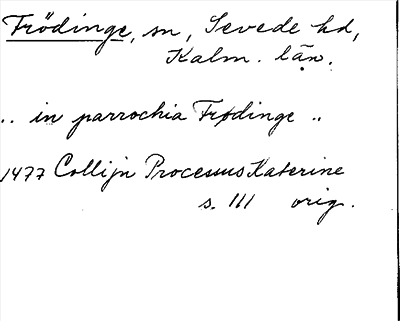 Frödinge, sn, Sevede hd,
Kalm. län.
.. in parrochia Frødinge ..
1477 Collijn Processus Katerine
s. 111 orig.